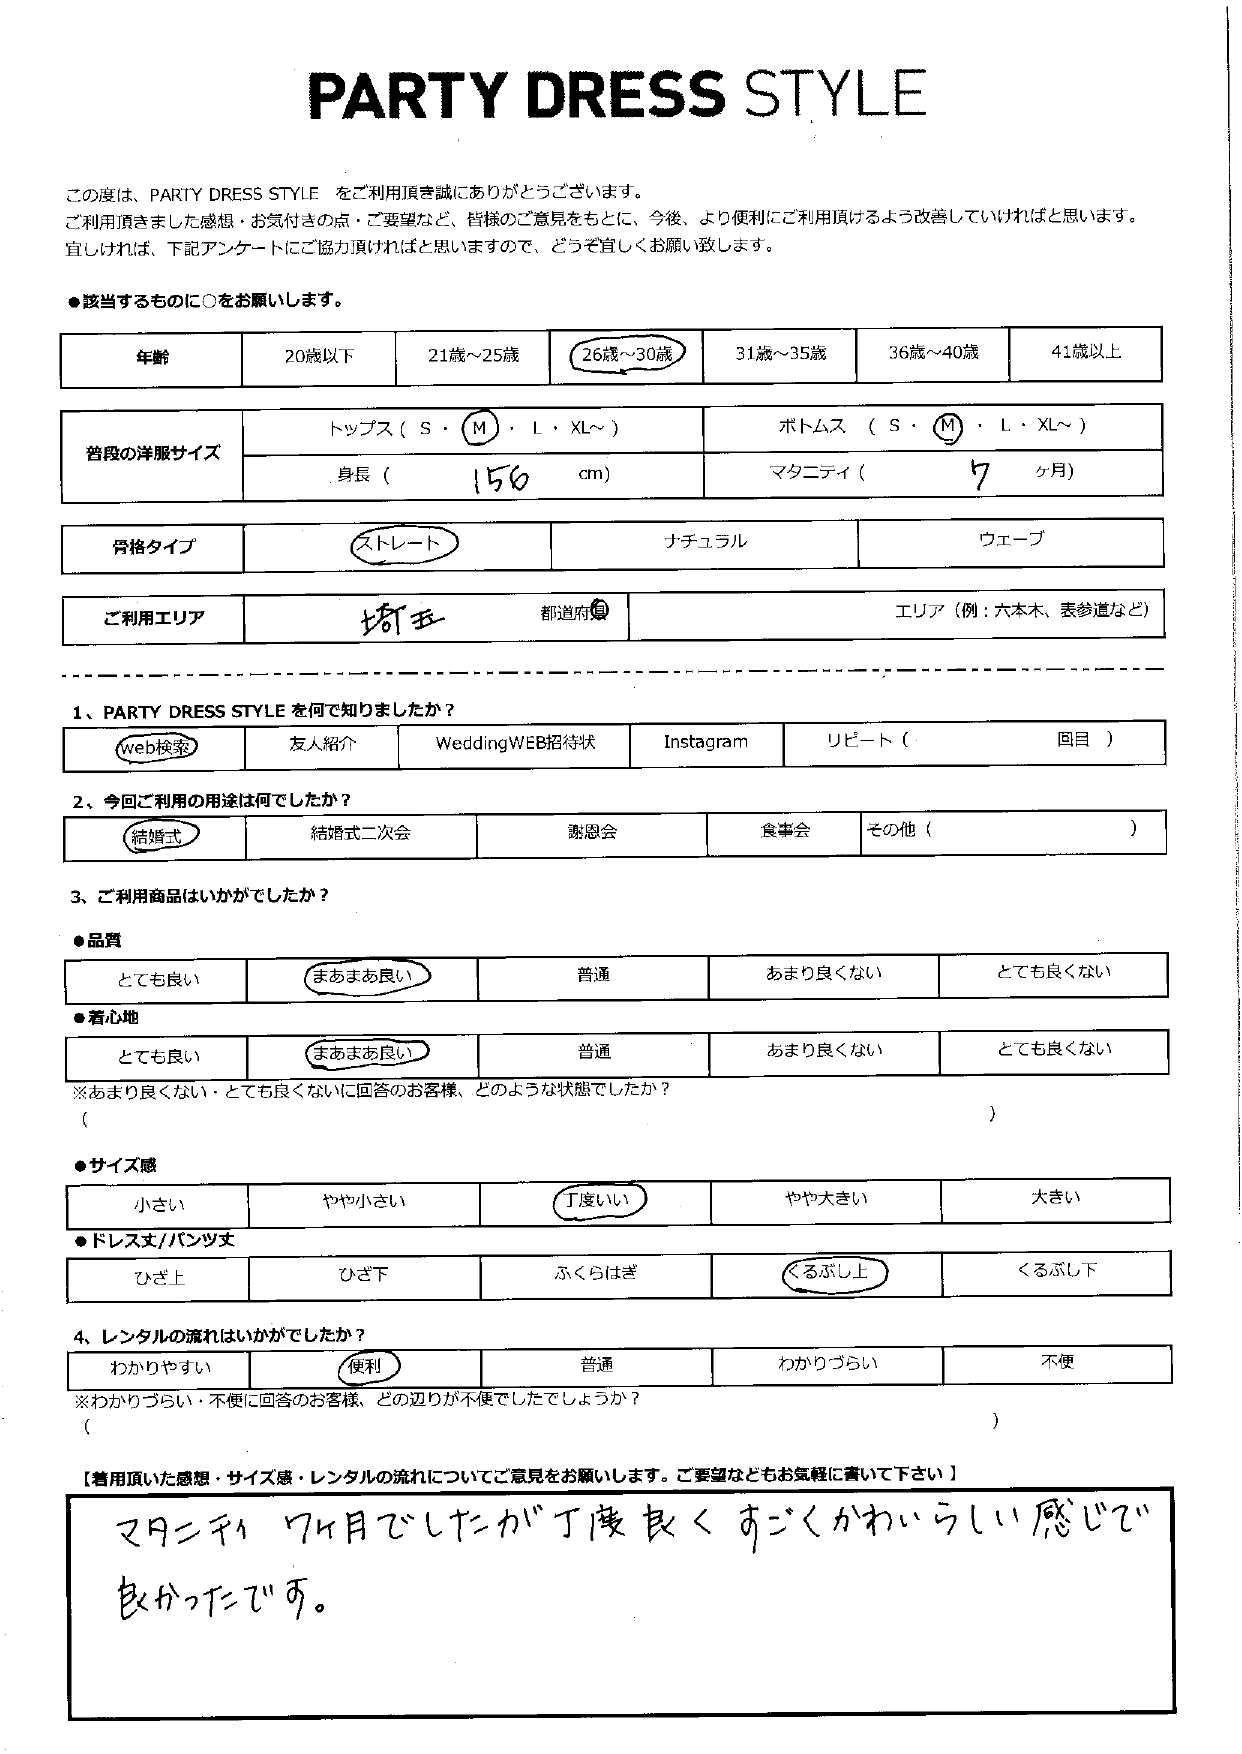 PARTY DRESS STYLE
この度は、PARTY DRESS STYLE をご利用頂き誠にありがとうございます。
ご利用頂きました感想・お気付きの点・ご要望など、皆様のご意見をもとに、今後、より便利にご利用頂けるよう改善していければと思います。
宜しければ、下記アンケートにご協力頂ければと思いますので、どうぞ宜しくお願い致します。
●該当するものに○をお願いします。
年齢 20歳以下 21歳～25歳 26歳～30歳 31歳～35歳 36歳～40歳 41歳以上
普段の洋服サイズ トップス ( S ・ M ・ L ・ XL～ ) ボトムス ( S ・ M ・ L ・ XL～ )
身長 ( 156 cm) マタニティ ( 7 ヶ月)
骨格タイプ ストレート ナチュラル ウェーブ
ご利用エリア 埼玉 都道府県 エリア（例：六本木、表参道など）
1、PARTY DRESS STYLE を何で知りましたか？
web検索 友人紹介 WeddingWEB招待状 Instagram リピート ( 回目 )
2、今回ご利用の用途は何でしたか？
結婚式 結婚式二次会 謝恩会 食事会 その他 ( )
3、ご利用商品はいかがでしたか？
●品質
とても良い まあまあ良い 普通 あまり良くない とても良くない
●着心地
とても良い まあまあ良い 普通 あまり良くない とても良くない
※あまり良くない・とても良くないに回答のお客様、どのような状態でしたか？
( )
●サイズ感
小さい やや小さい 丁度いい やや大きい 大きい
●ドレス丈/パンツ丈
ひざ上 ひざ下 ふくらはぎ くるぶし上 くるぶし下
4、レンタルの流れはいかがでしたか？
わかりやすい 便利 普通 わかりづらい 不便
※わかりづらい・不便に回答のお客様、どの辺りが不便でしたでしょうか？
( )
【着用頂いた感想・サイズ感・レンタルの流れについてご意見をお願いします。ご要望などもお気軽に書いて下さい 】
マタニティ 7ヶ月でしたが丁度良く すごくかわいらしい感じで
良かったです。